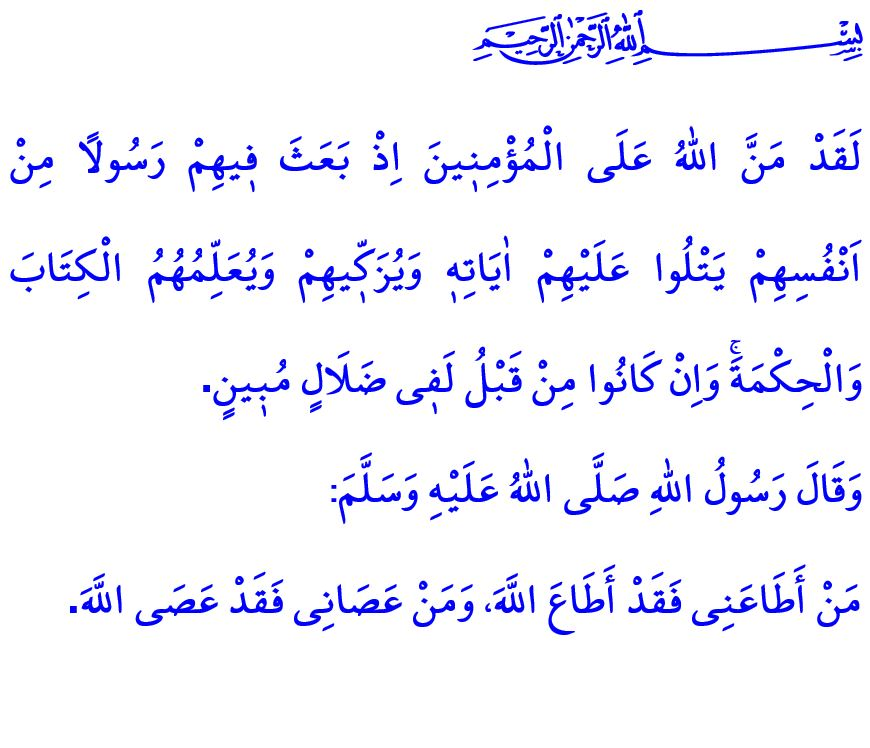 بِسْمِ اللهِ الرَّحْمٰنِ الرَّحِيمِ
لَقَدْ مَنَّ اللهُ عَلَى الْمُؤْمِنٖينَ اِذْ بَعَثَ فٖيهِمْ رَسُولًا مِنْ
اَنْفُسِهِمْ يَتْلُوا عَلَيْهِمْ اٰيَاتِهٖ وَيُزَكّٖيهِمْ وَيُعَلِّمُهُمُ الْكِتَابَ
وَالْحِكْمَةَۚ وَاِنْ كَانُوا مِنْ قَبْلُ لَفٖى ضَلَالٍ مُبٖينٍ.
وَقَالَ رَسُولُ اللهِ صَلَّى اللهُ عَلَيْهِ وَسَلَّمَ:
مَنْ أَطَاعَنِى فَقَدْ أَطَاعَ اللَّهَ، وَمَنْ عَصَانِى فَقَدْ عَصَى اللَّهَ.